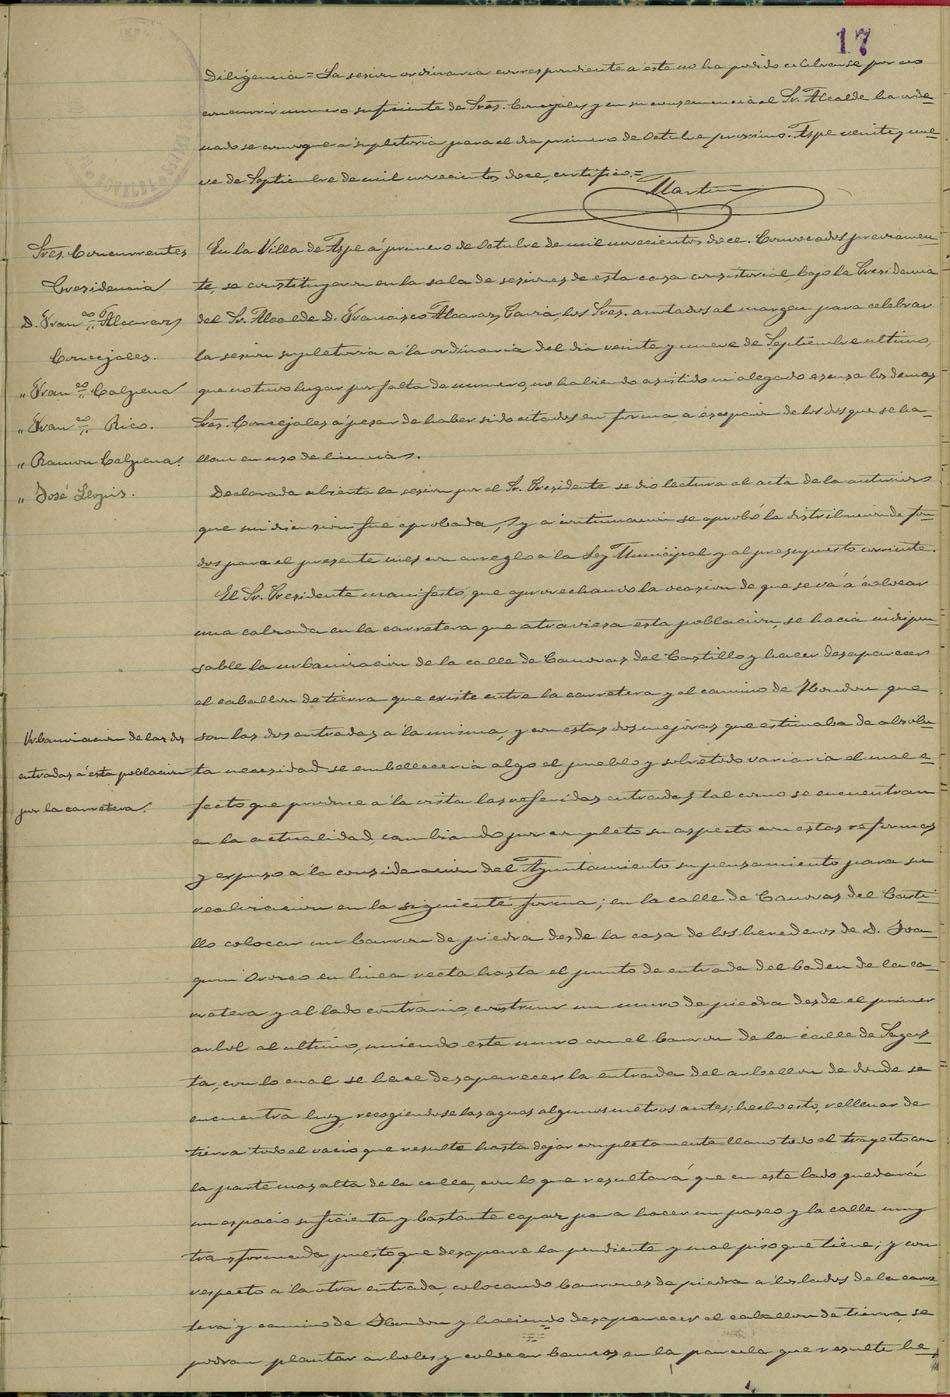 17
Diligencia = La sesion ordinaria correspondiente a este no ha podido celebrarse por no
concurrir numero suficiente de Sres. Concejales y en su consecuencia el Sr. Alcalde ha orde-
nado se convoque á supletoria para el dia primero de Octubre proximo. Aspe veinte y nue-
ve de Septiembre de mil novecientos doce, certifico. =
Martin
Sres. Concurrentes
Presidencia
D. Fran.co Alcaraz
Concejales.
" Fran.co Calpena
" Fran.co Rico.
" Ramon Calpena.
" José Llopis.
En la Villa de Aspe á primero de Octubre de mil novecientos doce. Convocados previamen-
te, se constituyeron en la sala de sesiones de esta casa consistorial, bajo la Presidencia
del Sr. Alcalde D. Francisco Alcaraz, los Sres. anotados al margen para celebrar
la sesion supletoria á la ordinaria del dia veinte y nueve de Septiembre ultimo,
que no tuvo lugar por falta de numero, no habiendo asistido ni alegado escusa los demas
Sres. Concejales á pesar de haber sido citados en forma, a escepcion de los dos que se ha-
llan en uso de licencia.
Declarada abierta la sesion por el Sr. Presidente se dio lectura al acta de la anterior
que sin discusion fue aprobada, y a continuacion se aprobó la distribucion de fon-
dos para el presente mes con arreglo a la Ley Municipal y al presupuesto corriente.
El Sr. Presidente manifestó, que aprovechando la ocasion de que se vá á colocar
una calzada en la carretera que atraviesa esta poblacion, se hacia indispen-
sable la urbanizacion de la calle de Canovas del Castillo y hacer desaparecer
el caballon de tierra que existe entre la carretera y el camino de Hondon que
Urbanizacion de las dos
entradas á esta poblacion
por la carretera.
son las dos entradas á la misma, y con estas dos mejoras que estimaba de absolu-
ta necesidad se embelleceria algo el pueblo y sobre todo variaria el mal e-
fecto que produce á la vista las referidas entradas tal como se encuentran
en la actualidad, cambiando por completo su aspecto con estas reformas
y expuso á la consideracion del Ayuntamiento su pensamiento para su
realizacion en la siguiente forma; en la calle de Canovas del Casti-
llo colocar un barron de piedra desde la casa de los herederos de D. Joa-
quin Orozco en linea recta hasta el punto de entrada del baden de la ca-
rretera y al lado contrario, construir un muro de piedra desde el primer
arbol al ultimo, uniendo este muro con el barron de la calle de Sagas-
ta, con lo cual se hace desaparecer la entrada del arballon de donde se
encuentra hoy, recogiendose las aguas algunos metros antes; hecho esto, rellenar de
tierra todo el vacio que resulte hasta dejar completamente llano todo el trayecto con
la parte mas alta de la calle, con lo que resultará que en este lado quedará
un espacio suficiente y bastante capaz para hacer un paseo y la calle muy
transformada puesto que desaparece la pendiente y mal piso que tiene; y con
respecto á la otra entrada, colocando barrones de piedra á los lados de la carre-
tera y camino de Hondon y haciendo desaparecer el caballon de tierra, se
podran plantar arboles y colocar bancos en la parcela que resulte he-